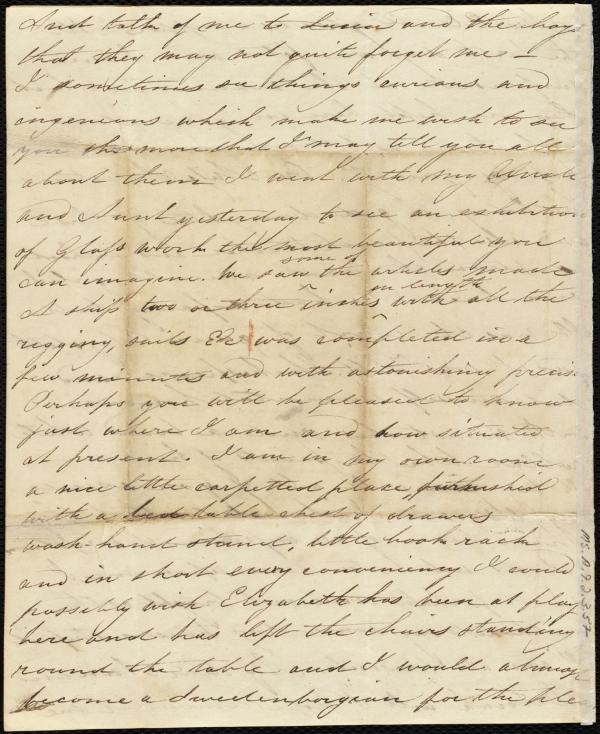 And talk of me to Lucia and the boys
that they may not quite forget me —
I sometimes see things curious and
ingenious which make me wish to see
you the more that I may tell you all
about them I went with my Uncle
and Aunt yesterday to see an exhibition
of Glass work the most beautiful you
can imagine. We saw some of the artists made
A ship two or three inches in length with all the
rigging, sails &c was completed in a
few minutes and with astonishing precis
Perhaps you will be pleased to know
just where I am and how situated
at present. I am in my own room
a nice little carpetted place furnished
with a bed table chest of drawers
wash-hand stand, little book rack
and in short every conveniency I could
possibly wish Elizabeth has been at play
here and has left the chairs standing
round the table and I would almost
become a Swedenborgian for the plea
Ms.A.9.2.3.57